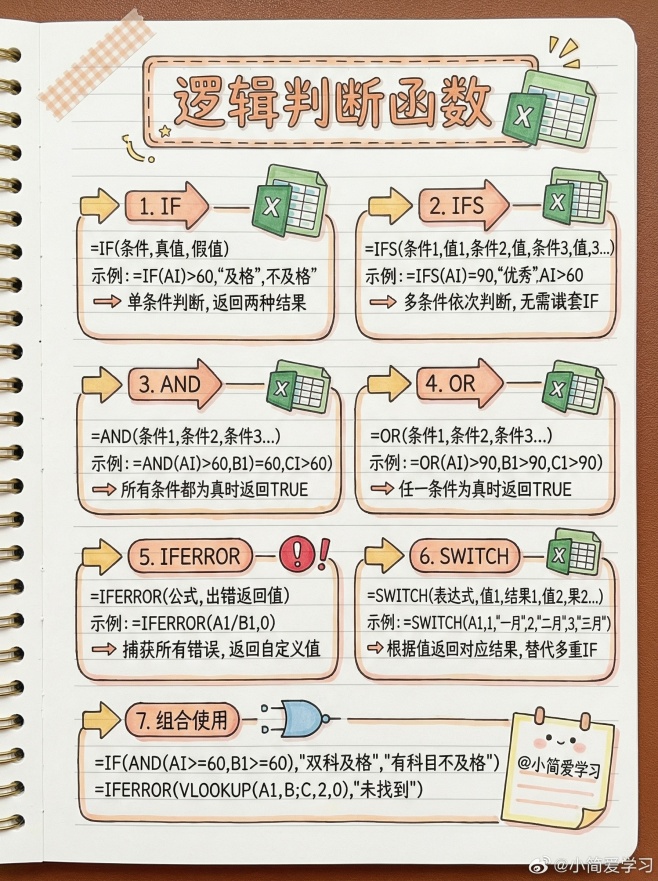 逻辑判断函数
1. IF
=IF(条件,真值,假值)
示例:=IF(AI)>60,“及格”,不及格”
单条件判断,返回两种结果
2. IFS
=IFS(条件1,值1,条件2,值,条件3,值,3...)
示例:=IFS(AI)=90,“优秀”,AI>60
多条件依次判断,无需诐套IF
3. AND
=AND(条件1,条件2,条件3...)
示例:=AND(AI)>60,B1)=60,CI>60)
所有条件都为真时返回TRUE
4. OR
=OR(条件1,条件2,条件3...)
示例:=OR(AI)>90,B1>90,C1>90)
任一条件为真时返回TRUE
5. IFERROR
=IFERROR(公式,出错返回值)
示例:=IFERROR(A1/B1,0)
捕获所有错误,返回自定义值
6. SWITCH
=SWITCH(表达式,值1,结果1,值2,果2...)
示例:=SWITCH(A1,1,"一月",2,"二月",3,"三月")
根据值返回对应结果,替代多重IF
7. 组合使用
=IF(AND(AI>=60,B1>=60),"双科及格","有科目不及格")
=IFERROR(VLOOKUP(A1,B;C,2,0),"未找到")
@小简爱学习
@小简爱学习